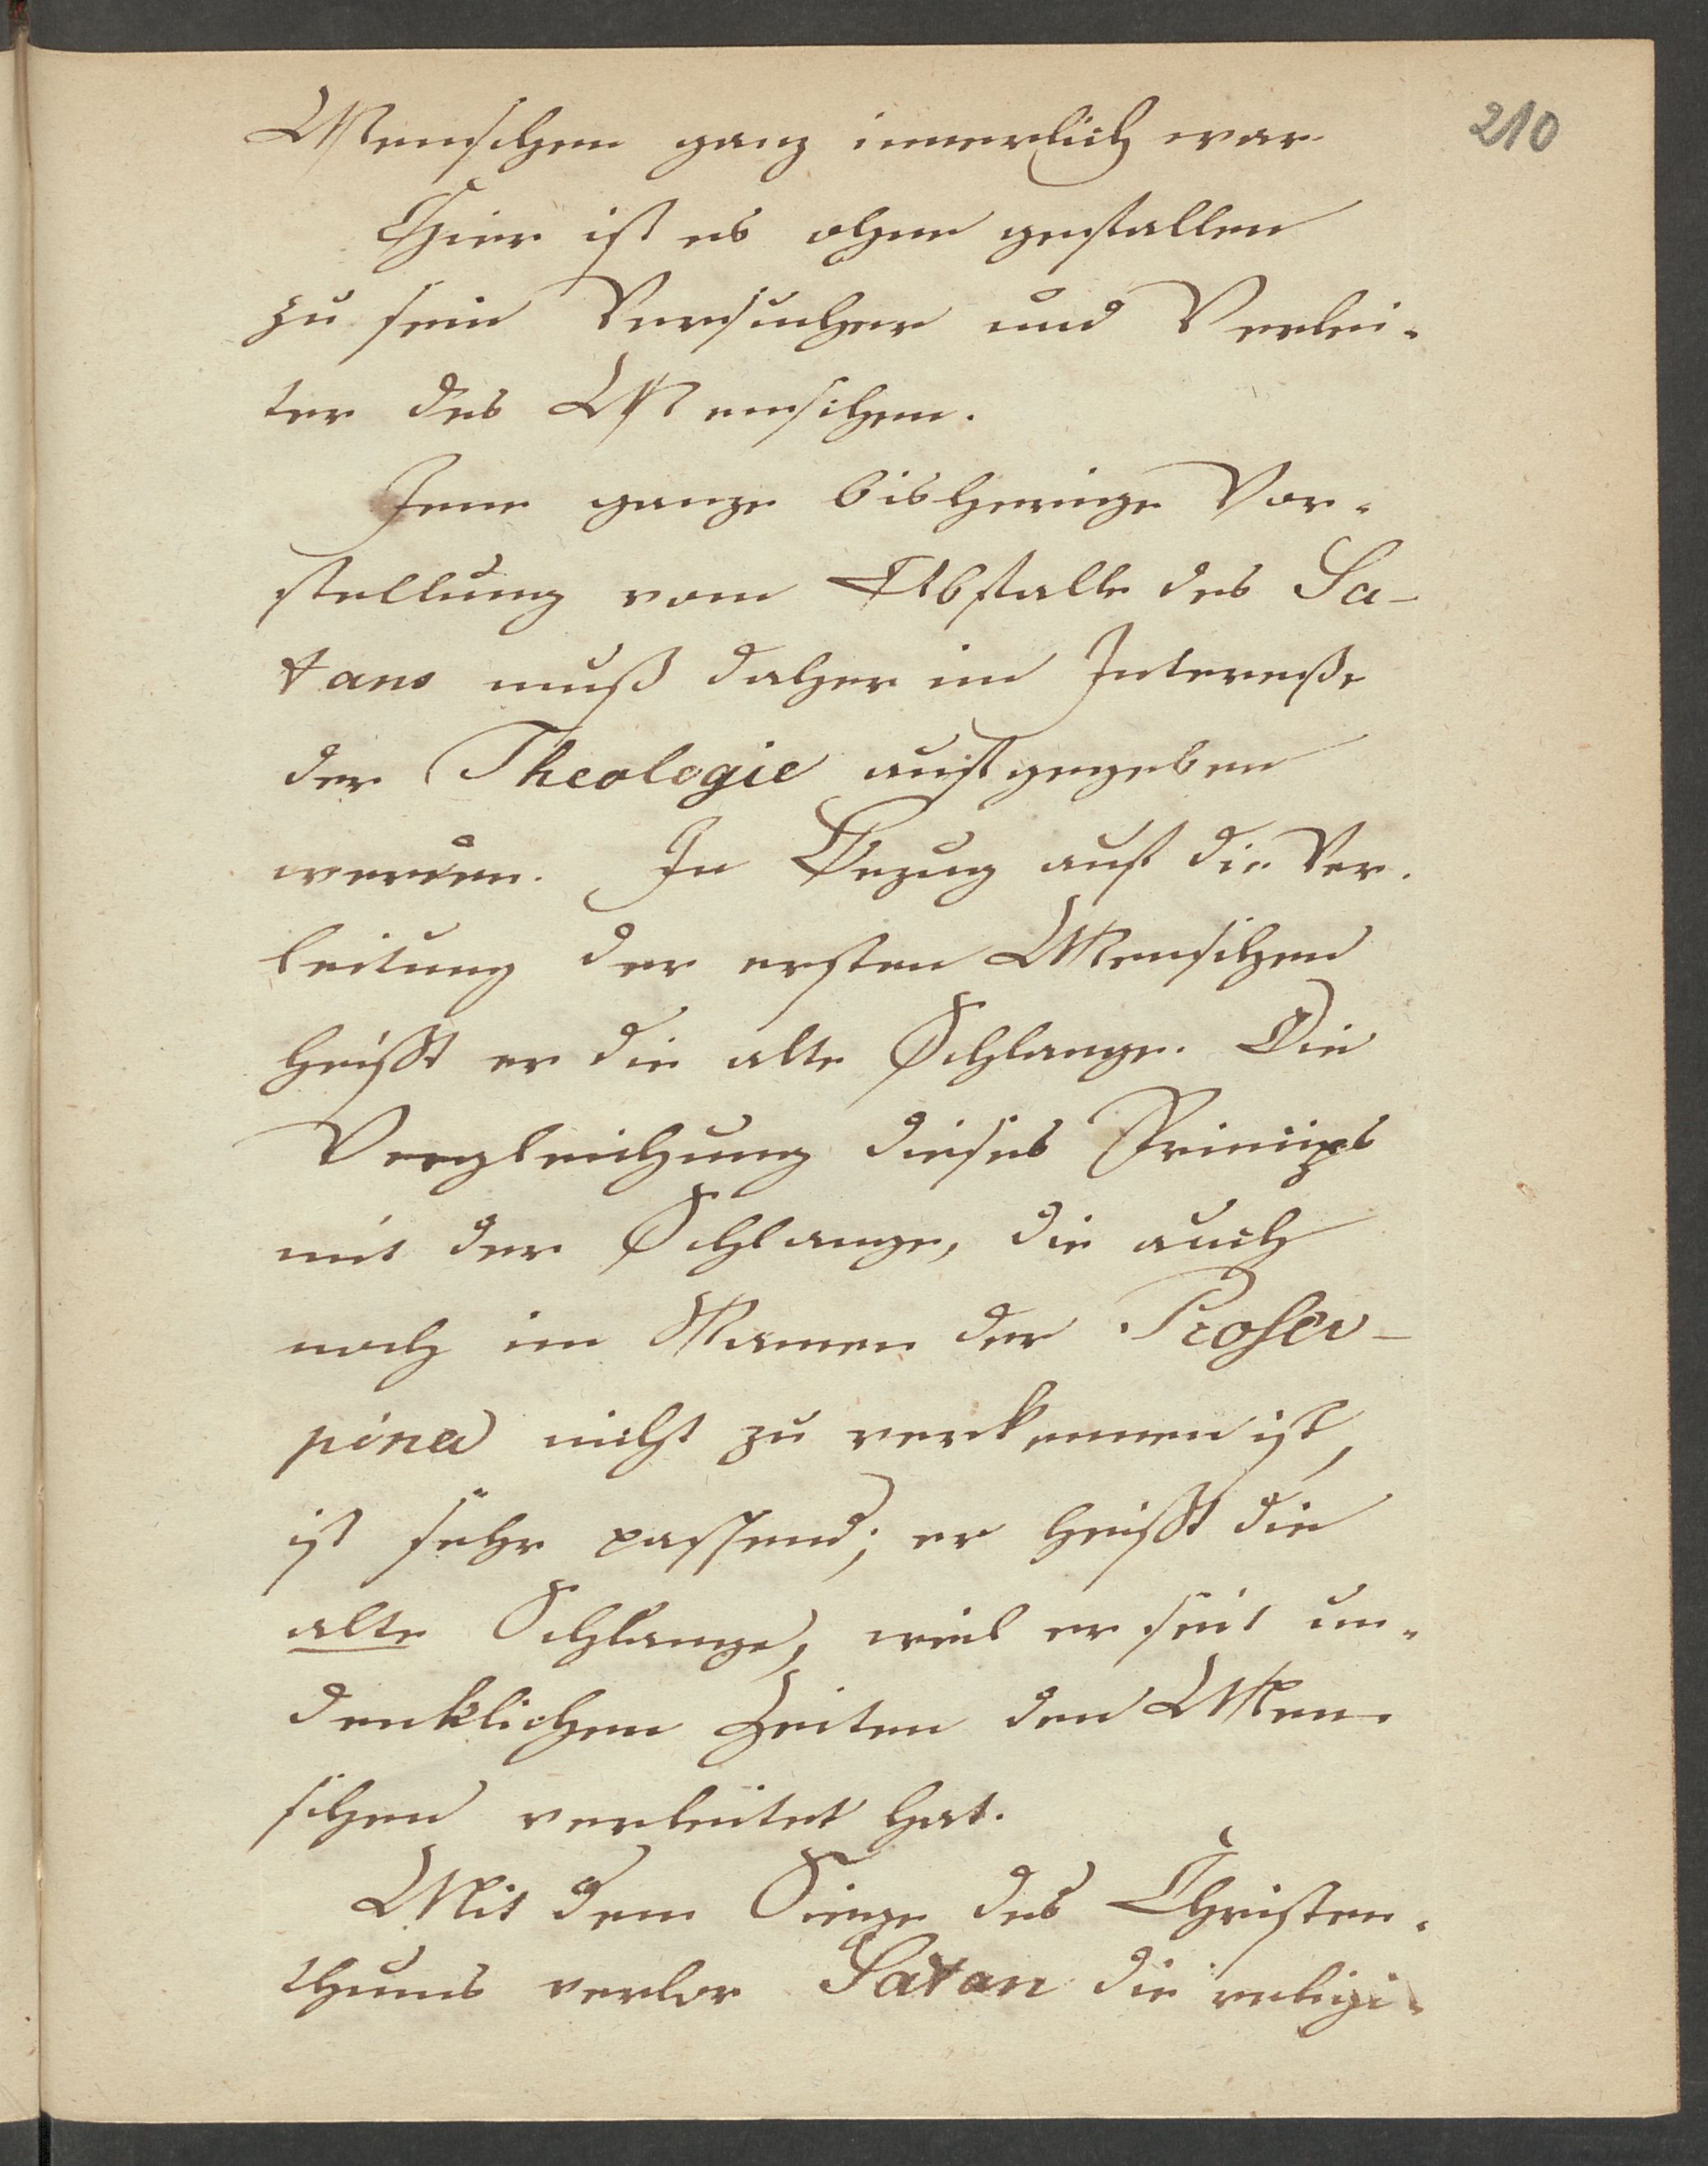 210
Menschen ganz innerlich war.
Hier ist es ohne gefallen
zu sein Versucher und Verlei-
ter des Menschen.
Jene ganze bisherige Vor-
stellung vom Abfalle des Sa-
tans muß daher im Interesse
der Theologie aufgegeben
werden. In Bezug auf die Ver-
leitung der ersten Menschen
heißt er die alte Schlange. Die
Vergleichung dieses Princips
mit der Schlange, die auch
noch im Namen der Proser-
pina nicht zu verkennen ist,
ist sehr passend; er heißt die
alte Schlange, weil er seit un-
denklichen Zeiten den Men-
schen verleitet hat.
Mit dem Siege des Christen-
thums verlor Satan die religi-